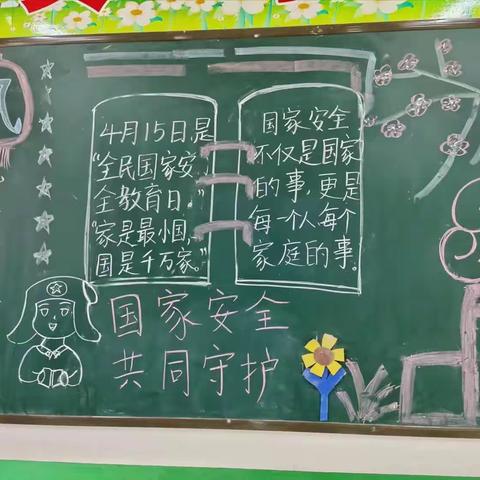 4月15日是
“全民国家安
全教育日。”
“家是最小国，
国是千万家。”
国家安全
不仅是国家
的事，更是
每一个人每个
家庭的事。
国家安全
共同守护